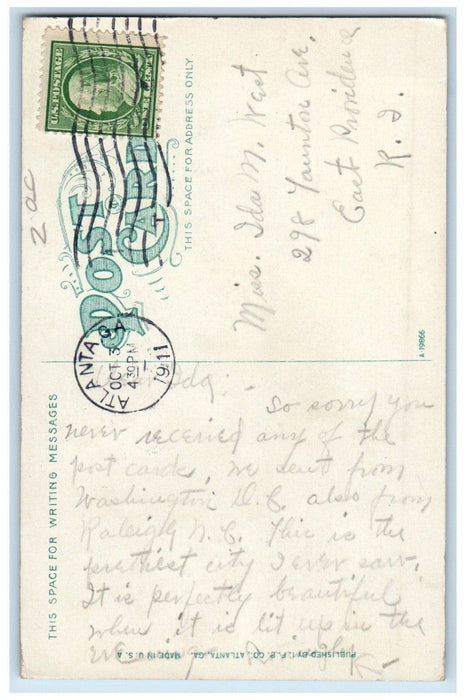 U.S. POSTAGE
POST CARD
THIS SPACE FOR ADDRESS ONLY
ATLANTA GA
OCT 3
4:30 PM
1911
Miss. Ida M. West
298 Taunton Ave.
East Providence
R. I.
A-19866
THIS SPACE FOR WRITING MESSAGES
Ida:
So sorry you
never received any of the
post cards, we sent from
Washington D.C. also from
Raleigh N.C. This is the
prettiest city I ever saw.
It is perfectly beautiful
when it is lit up in the
evening.
PUBLISHED BY I.F.P. CO., ATLANTA, GA. MADE IN U.S.A.